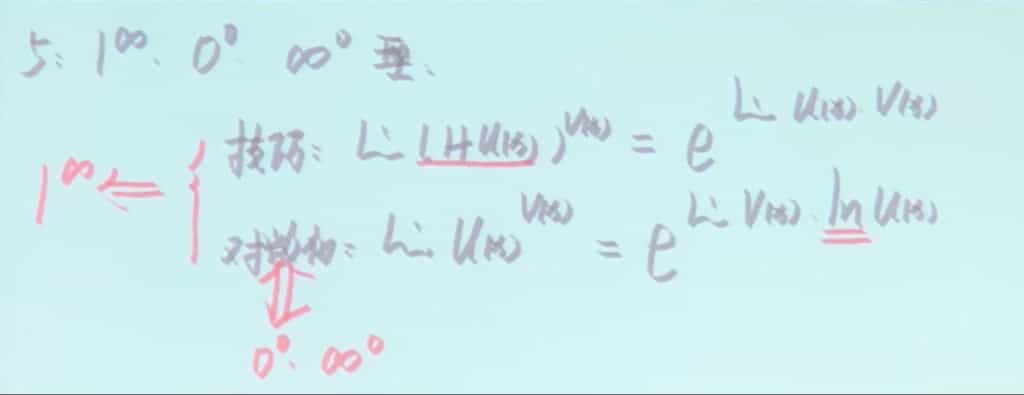 5: 1^∞、0^0、∞^0 型、
技巧: Lim (1+U(x))^V(x) = e^Lim U(x)·V(x)
1^∞ ⇐ {
对数构: Lim U(x)^V(x) = e^Lim V(x)·ln U(x)
0^0、∞^0